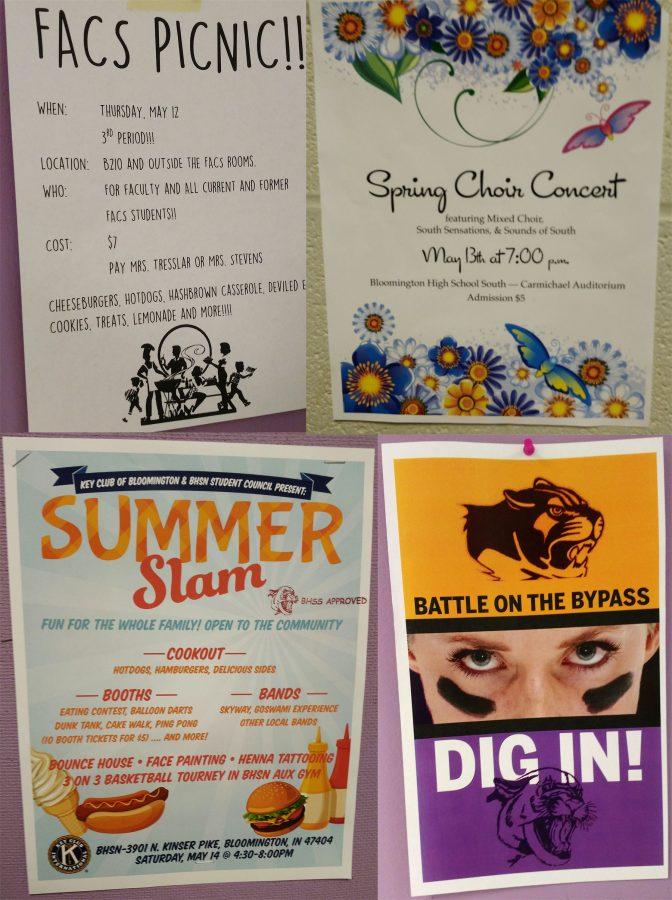 FACS PICNIC!!
WHEN: THURSDAY, MAY 12
3RD PERIOD!!!
LOCATION: B210 AND OUTSIDE THE FACS ROOMS.
WHO: FOR FACULTY AND ALL CURRENT AND FORMER
FACS STUDENTS!!
COST: $7
PAY MRS. TRESSLAR OR MRS. STEVENS
CHEESEBURGERS, HOTDOGS, HASHBROWN CASSEROLE, DEVILED E
COOKIES, TREATS, LEMONADE AND MORE!!!!
Spring Choir Concert
featuring Mixed Choir,
South Sensations, & Sounds of South
May 13th at 7:00 p.m.
Bloomington High School South — Carmichael Auditorium
Admission $5
KEY CLUB OF BLOOMINGTON & BHSN STUDENT COUNCIL PRESENT:
SUMMER
Slam
BHSS APPROVED
FUN FOR THE WHOLE FAMILY! OPEN TO THE COMMUNITY
COOKOUT
HOTDOGS, HAMBURGERS, DELICIOUS SIDES
BOOTHS
EATING CONTEST, BALLOON DARTS
DUNK TANK, CAKE WALK, PING PONG
(10 BOOTH TICKETS FOR $5) .... AND MORE!
BANDS
SKYWAY, GOSWAMI EXPERIENCE
OTHER LOCAL BANDS
BOUNCE HOUSE • FACE PAINTING • HENNA TATTOOING
3 ON 3 BASKETBALL TOURNEY IN BHSN AUX GYM
K
BHSN-3901 N. KINSER PIKE, BLOOMINGTON, IN 47404
SATURDAY, MAY 14 @ 4:30-8:00PM
BATTLE ON THE BYPASS
DIG IN!